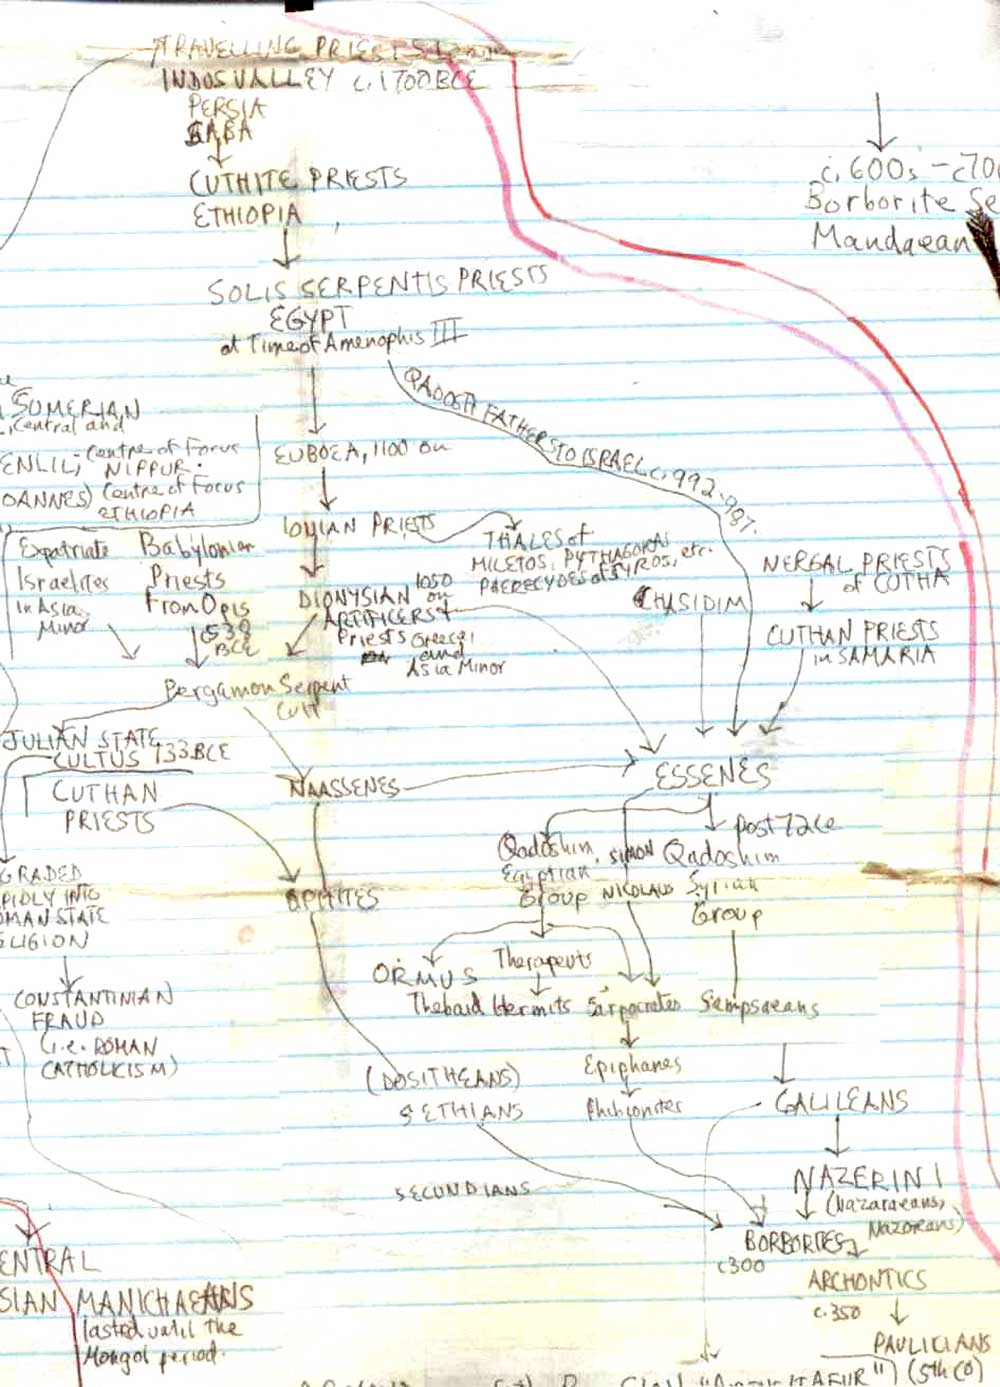 TRAVELLING PRIESTS
INDOS VALLEY c.1700BCE
PERSIA
SABA
CUTHITE PRIESTS
ETHIOPIA
c.600s - c700
Borborite Se
Mandaean
SOLIS SERPENTIS PRIESTS
EGYPT
at Time of Amenophis III
QADOSH FATHERS TO ISRAEL c.992-987.
SUMERIAN
Central and
ENLIL; Centre of Focus
NIPPUR.
OANNES) Centre of Focus
ETHIOPIA
EUBOEA, 1100 on
IONIAN PRIESTS
THALES of
MILETOS, PYTHAGORAS
PHERECYDES of SYROS, etc.
Expatriate
Israelites
In Asia
Minor
Babylonian
Priests
From Opis
c539
BCE
DIONYSIAN 1050 on
ARTIFICERS
Priests Greece
and
Asia Minor
CHASIDIM
NERGAL PRIESTS
of CUTHA
CUTHAN PRIESTS
in SAMARIA
Bergamon Serpent
Cult
JULIAN STATE
CULTUS 133BCE
CUTHAN
PRIESTS
NAASSENES
ESSENES
post 72ce
Qadoshim
Egyptian
Group
SIMON
NICOLAUS
Qadoshim
Syrian
Group
OPHITES
GRADED
PIDLY INTO
OMAN STATE
LIGION
ORMUS
Therapeuts
Thebaid Hermits
Carpocrates
Sampsaeans
CONSTANTINIAN
FRAUD
(i.e. ROMAN
CATHOLICISM)
Epiphanes
Phibionites
(DOSITHEANS)
SETHIANS
GALILEANS
SECUNDIANS
NAZERINI
(Nazaraeans,
Nazoreans)
BORBORITES
c300
ARCHONTICS
c.350
PAULICIANS
(5th CO)
ENTRAL
SIAN MANICHAEANS
lasted until the
Mongol period.